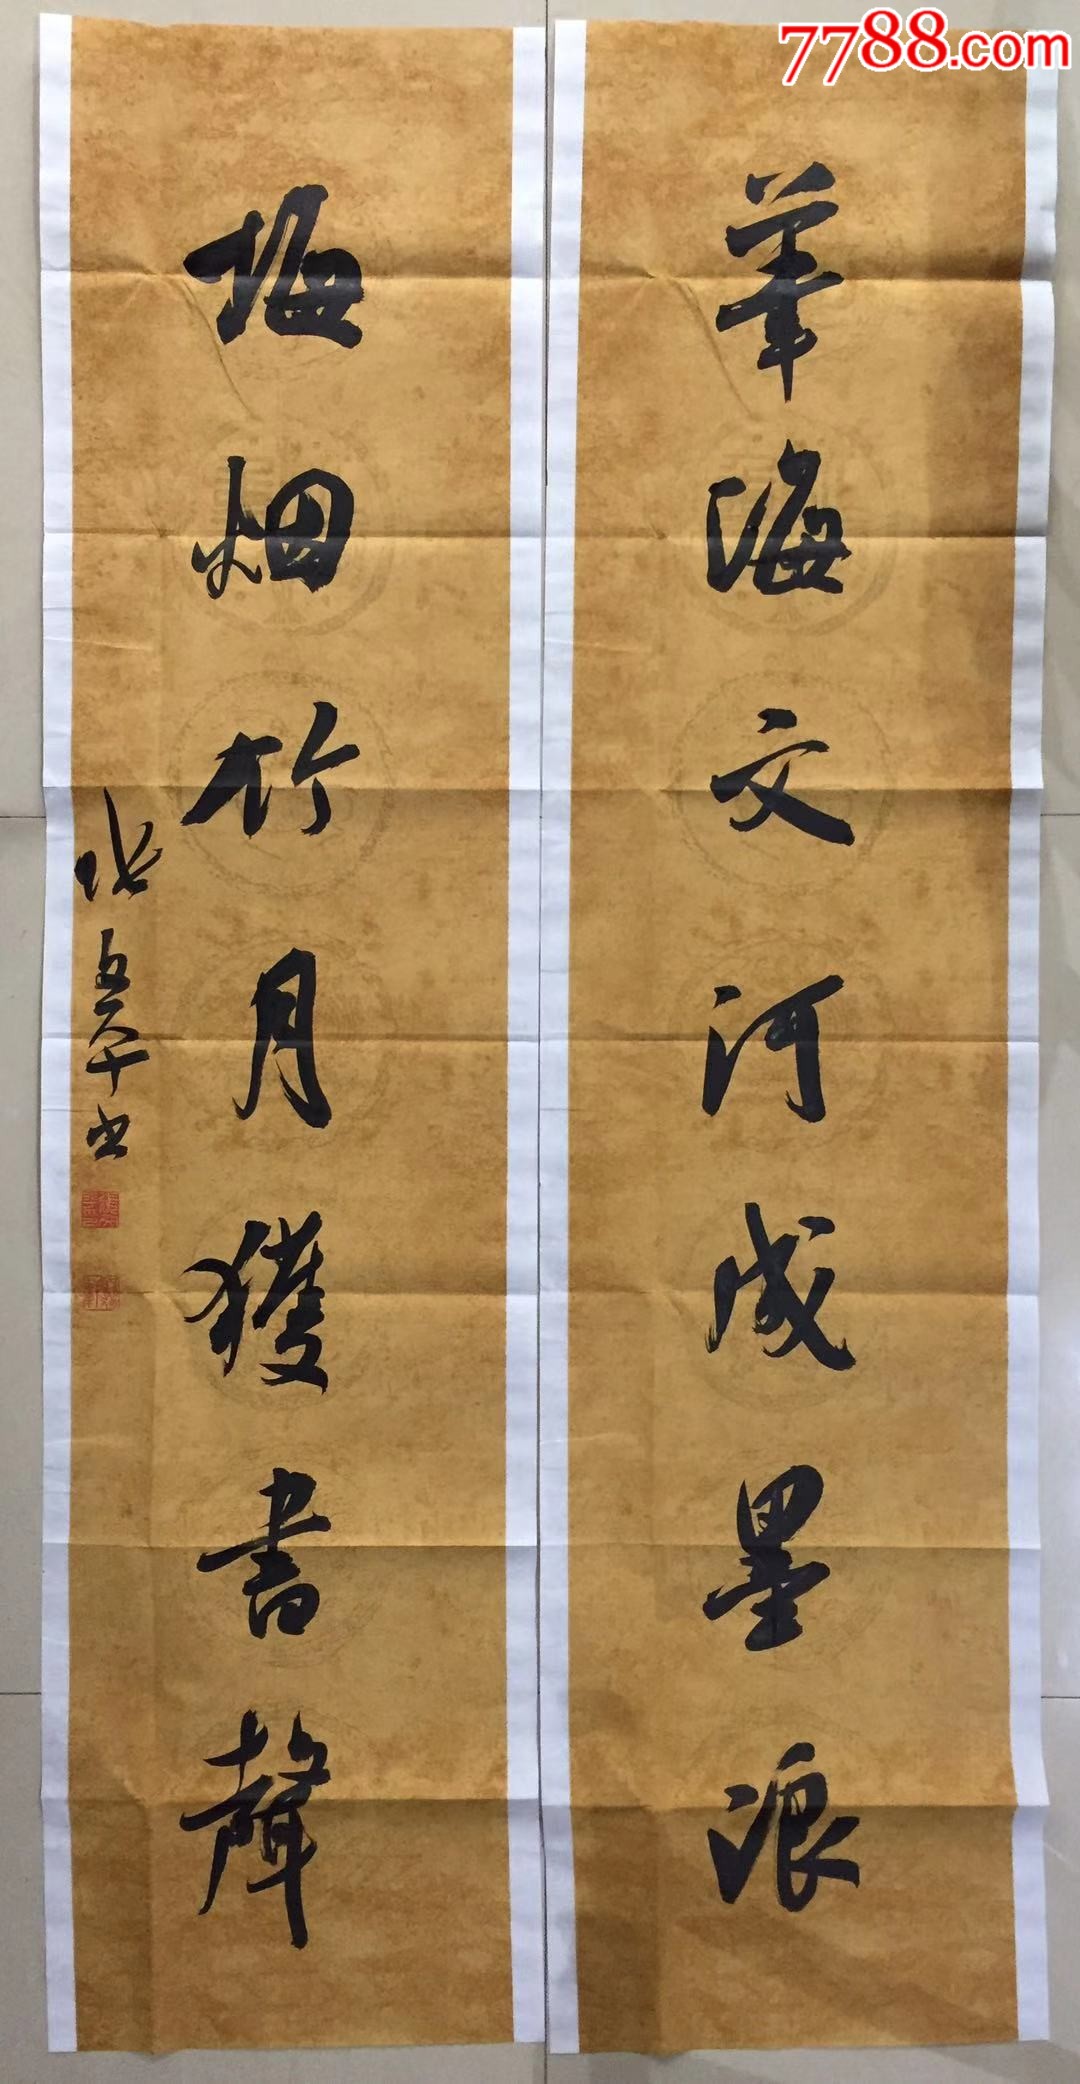 筆海文河成墨浪
梅烟竹月獲書聲
7788.com